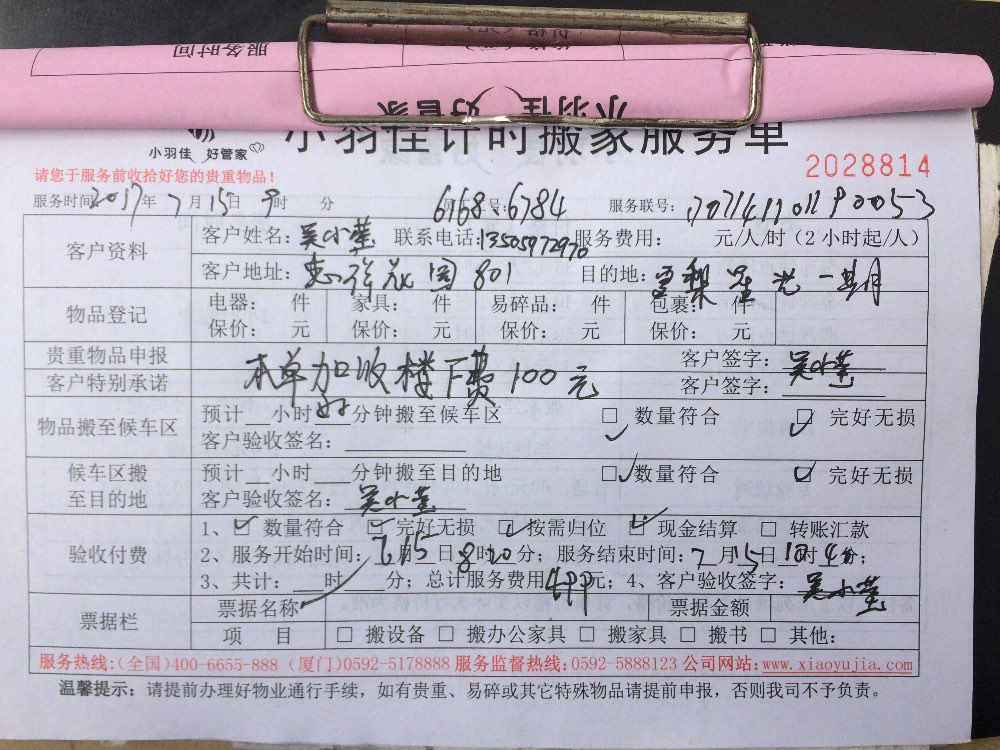 服务时间
小羽佳 好管家
小羽佳计时搬家服务单
小羽佳 好管家
2028814
请您于服务前收拾好您的贵重物品!
服务时间2017年7月15日9时 分 6168、6784 服务联号:
客户资料 客户姓名:吴小莹 联系电话:13505972970 服务费用: 元/人/时(2小时起/人)
客户地址: 园801 目的地:雪梨星光一期
物品登记 电器: 件 家具: 件 易碎品: 件 包裹: 件
保价: 元 保价: 元 保价: 元 保价: 元
贵重物品申报 本单加收楼下费100元 客户签字:吴小莹
客户特别承诺 客户签字:
物品搬至候车区 预计 小时 分钟搬至候车区 □ 数量符合 □ 完好无损
客户验收签名:
候车区搬至目的地 预计 小时 分钟搬至目的地 □ 数量符合 □ 完好无损
客户验收签名:吴小莹
验收付费 1、☑ 数量符合 ☑ 完好无损 ☑ 按需归位 ☑ 现金结算 □ 转账汇款
2、服务开始时间:7月15日8时20分;服务结束时间:7月15日10时4分;
3、共计: 时 分;总计服务费用 元;4、客户验收签字:吴小莹
票据栏 票据名称 票据金额
项 目 □ 搬设备 □ 搬办公家具 □ 搬家具 □ 搬书 □ 其他:
服务热线:(全国)400-6655-888 (厦门)0592-5178888 服务监督热线:0592-5888123 公司网站:www.xiaoyujia.com
温馨提示:请提前办理好物业通行手续,如有贵重、易碎或其它特殊物品请提前申报,否则我司不予负责。